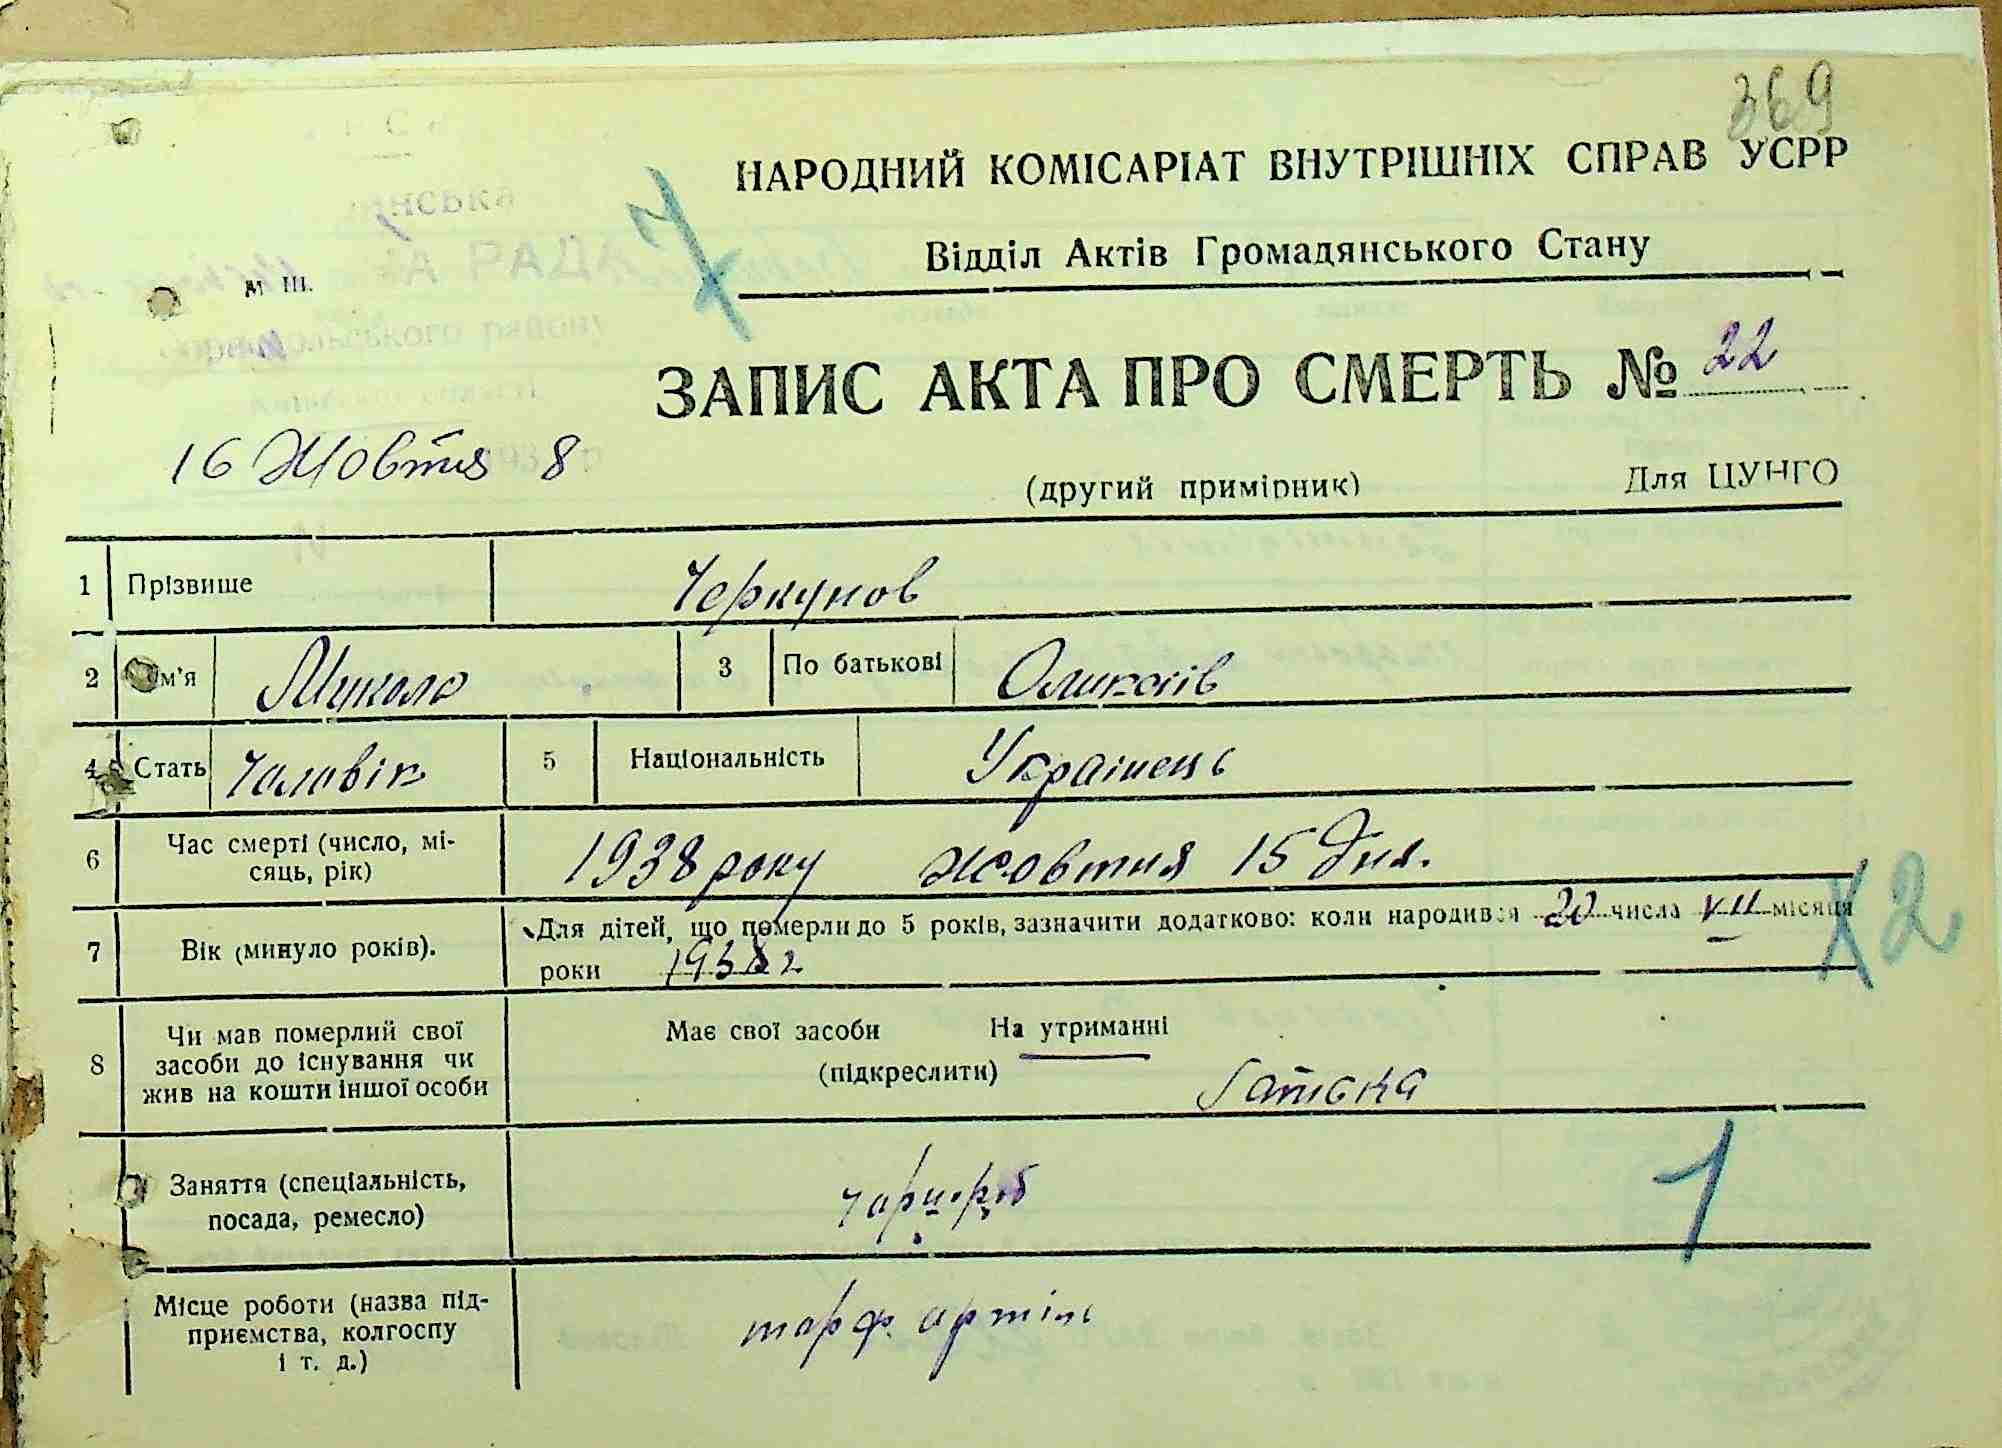 369
НАРОДНИЙ КОМІСАРІАТ ВНУТРІШНІХ СПРАВ УСРР
7
Відділ Актів Громадянського Стану
М Ш.
А РАДА
ЗАПИС АКТА ПРО СМЕРТЬ № 22
16 Жовтня 8
(другий примірник) Для ЦУНГО
1 Прізвище Черкунов
2 Ім'я Микола 3 По батькові
4 Стать Чоловік 5 Національність Українець
6 Час смерті (число, мі-
сяць, рік) 1938 року жовтня 15 дня.
7 Вік (минуло років). Для дітей, що померли до 5 років, зазначити додатково: коли народився 20 числа VII місяця
роки 1938 г
Х2
8 Чи мав померлий свої
засоби до існування чи
жив на кошти іншої особи Має свої засоби На утриманні
(підкреслити)
батька
Заняття (спеціальність,
посада, ремесло) 1
Місце роботи (назва під-
приємства, колгоспу
і т. д.) торф. артіль